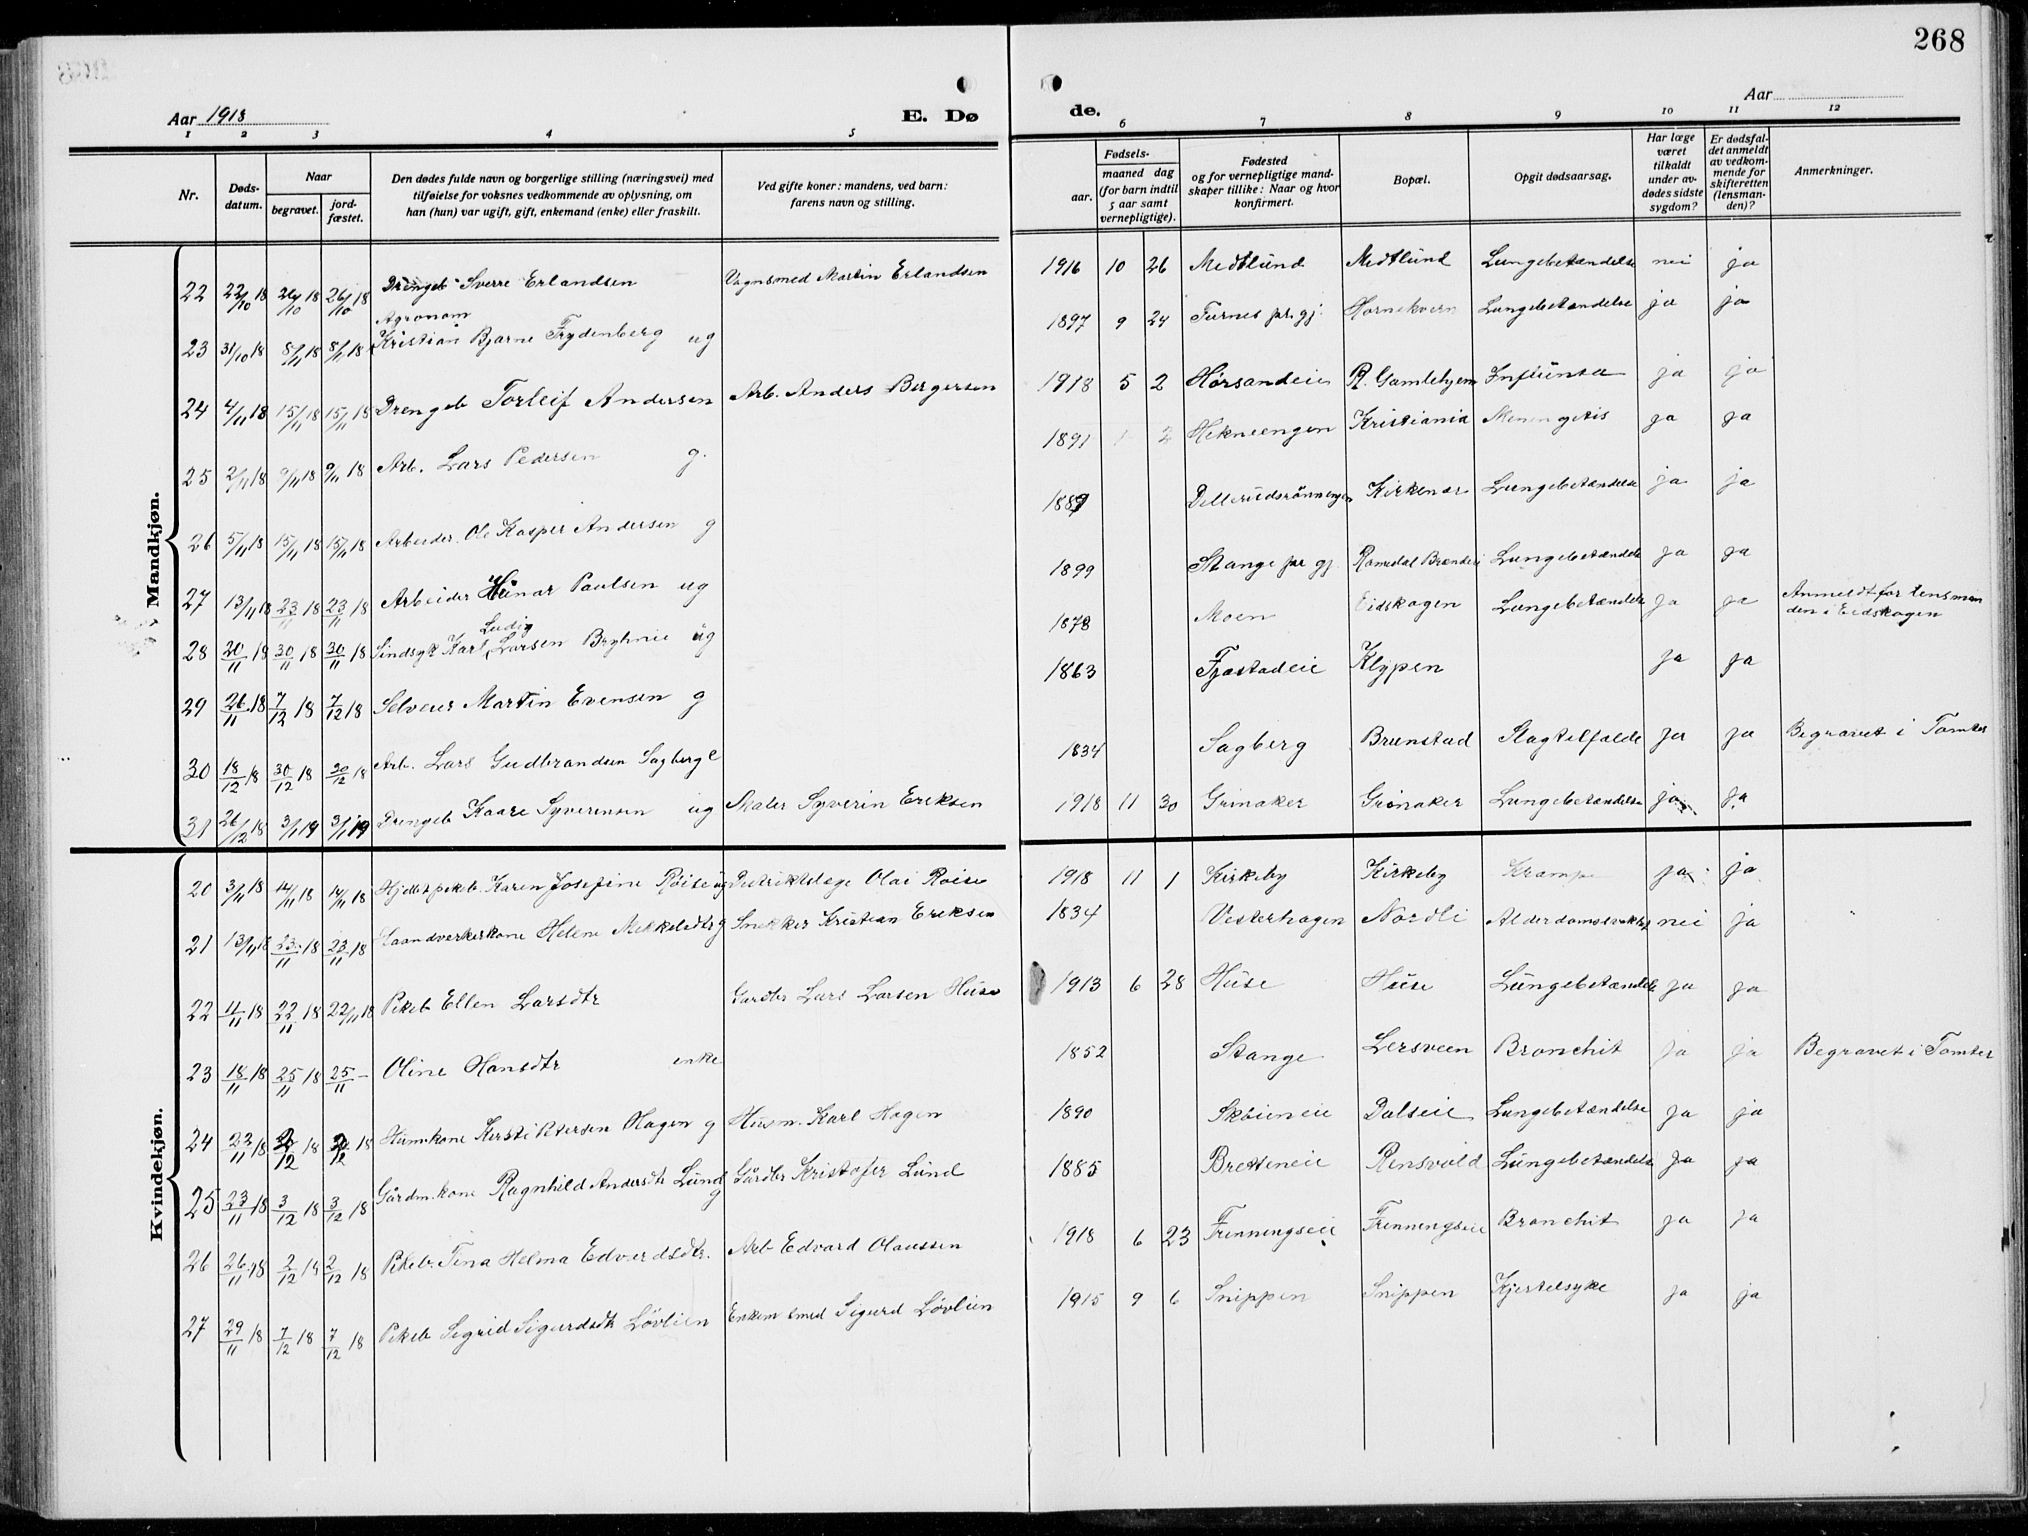 268
Aar 1918
E. Dø
de.
Aar
1 2 3 4 5 6 7 8 9 10 11 12
Nr.
Døds-
datum.
Naar
begravet.
jord-
fæstet.
Den dødes fulde navn og borgerlige stilling (næringsvei) med
tilføielse for voksnes vedkommende av oplysning, om
han (hun) var ugift, gift, enkemand (enke) eller fraskilt.
Ved gifte koner: mandens, ved barn:
farens navn og stilling.
Fødsels-
aar.
maaned dag
(for barn indtil
5 aar samt
vernepligtige).
Fødested
og for vernepligtige mand-
skaper tillike: Naar og hvor
konfirmert.
Bopæl.
Opgit dødsaarsag.
Har læge
været
tilkaldt
under av-
dødes sidste
sygdom?
Er dødsfal-
det anmeldt
av vedkom-
mende for
skifteretten
(lensman-
den)?
Anmerkninger.
Mandkjøn.
22 22/10 18 26/10 18 26/10 18 Drengeb. Sverre Erlandsen Vognsmed Martin Erlandsen 1916 10 26 Medtlund Medtlund Lungebetændelse nei ja
Agronom
23 31/10 18 8/11 18 8/11 18 Kristian Bjarne Frydenberg ug 1897 9 24 Furnes pr. gj. Hornekvern Lungebetændelse ja ja
24 4/11 18 15/11 18 15/11 18 Drengeb Torleif Andersen Arb. Anders Bergersen 1918 5 2 Hørsandeie R. Gamlehjem Influensa ja ja
25 2/11 18 9/11 18 9/11 18 Arb. Lars Pedersen g. 1891 2 Hekneengen Kristiania Meningetis ja ja
26 5/11 18 15/11 18 15/11 18 Arbeider Ole Kasper Andersen g 1889 Dellerudsrønningen Kirkenær Lungebetændelse ja ja
27 13/11 18 23/11 18 23/11 18 Arbeider Paulsen ug 1899 Stange pr gj. Romedal Lungebetændelse ja ja
Ludig
28 20/11 18 30/11 18 30/11 18 Sindsyk Karl Larsen Bryhnie ug 1878 Moen Eidskogen Lungebetændelse ja ja Anmeldt for lensman
den i Eidskogen
29 26/11 18 7/12 18 7/12 18 Selveier Martin Evensen g 1863 Fjæstadeie Klypen ja ja
30 18/12 18 30/12 18 30/12 18 Arb. Lars Gudbrandsen Sagberg e 1834 Sagberg Brenstad Slagtilfælde ja ja Begravet i Tomter
31 26/12 18 3/1 19 3/1 19 Drengeb Kaare Syverinsen ug Maler Syverin Eriksen 1918 11 30 Grinaker Grinaker Lungebetændelse ja ja
Kvindekjøn.
20 3/11 18 14/11 18 14/11 18 Hjdøbt pikeb. Karen Josefine Røise ug Distriktslæge Olai Røise 1918 11 1 Kirkeby Kirkeby Krampe ja ja
21 13/11 18 23/11 18 23/11 18 Haandverkerkone Helene Mekkelsdtr g Snekker Kristian Eriksen 1834 Vesterhagen Nordli Alderdomssvakhet nei ja
22 11/11 18 22/11 18 22/11 18 Pikeb Ellen Larsdtr Gardbr Lars Larsen Huse 1913 6 28 Huse Huse Lungebetændelse ja ja
23 18/11 18 25/11 18 25/11 — Oline Hansdtr enke 1852 Stange Lersveen Bronchit ja ja Begravet i Tomter
24 23/11 18 /12 18 /12 18 Husm.kone Kersti Petersen Hagen g Husm. Karl Hagen 1890 Skøieneie Dalseie Lungebetændelse ja ja
25 23/11 18 3/12 18 3/12 18 Gårdm.kone Ragnhild Andersdtr Lund g Gårdbr Kristofer Lund 1885 Bresteneie Rensvold Lungebetændelse ja ja
26 26/11 18 2/12 18 2/12 18 Pikeb. Tina Helma Edvardsdtr. Arb Edvard Olaussen 1918 6 23 Frenningseie Frenningseie Bronchit ja ja
27 29/11 18 7/12 18 7/12 18 Pikeb Sigrid Sigurdsdtr Løvlien Enkem smed Sigurd Løvlien 1915 9 6 Snippen Snippen Kjertelsyke ja ja